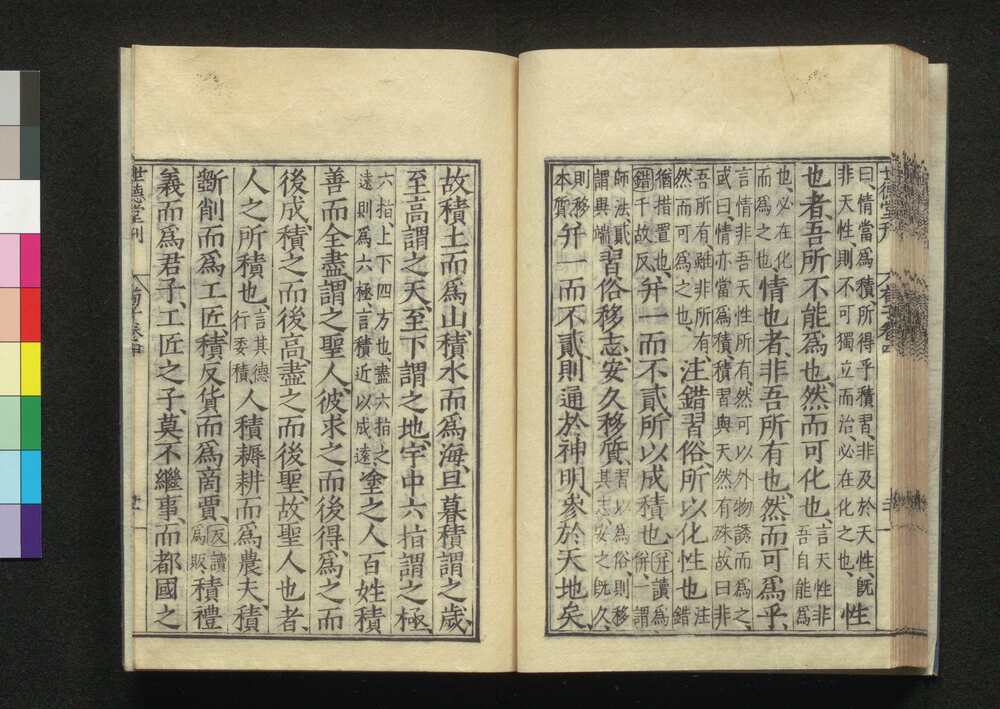 曰情當爲積所得乎積習非及於天性既
非天性則不可獨立而治必在化之也
性
也者吾所不能爲也然而可化也
言天性非
吾自能爲
也必在化
而爲之也
情也者非吾所有也然而可爲乎
言情非吾天性所有然可以外物誘而爲之
或曰情亦當爲積積習與天然有殊故曰非
吾所有雖非所有
然而可爲之也
注錯習俗所以化性也
注
錯
猶措置也
錯千故反
幷一而不貳所以成積也
幷讀爲
倂一謂
師法貳
謂異端
習俗移志安久移質
習以爲俗則移
其志安之既久
則移
本質
幷一而不貳則通於神明參於天地矣
故積土而爲山積水而爲海旦暮積謂之歲
至高謂之天至下謂之地宇中六指謂之極
六指上下四方也盡六指之
遠則爲六極言積近以成遠
塗之人百姓積
善而全盡謂之聖人彼求之而後得爲之而
後成積之而後高盡之而後聖故聖人也者
人之所積也
言其德
行委積
人積耨耕而爲農夫積
斲削而爲工匠積反貨而爲商賈
反讀
爲販
積禮
義而爲君子工匠之子莫不繼事而都國之
世德堂刊
荀子卷四